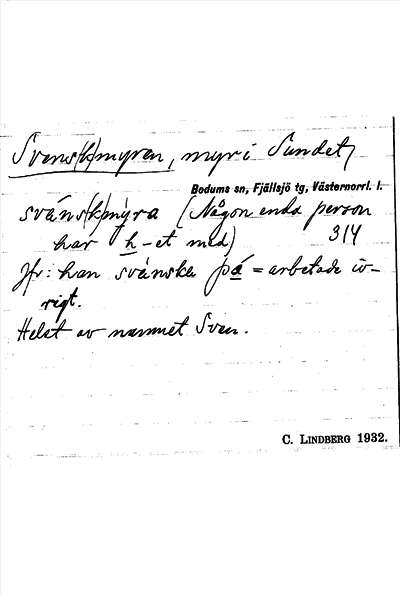 Svens(k)myren, myr i Sundet,
Bodums sn, Fjällsjö tg, Västernorrl. l.
sväns(k)mýra (Någon enda person
har h-et med) 314
Jfr: han svänska på = arbetade iv-
rigt.
Helst av namnet Sven.
C. LINDBERG 1932.